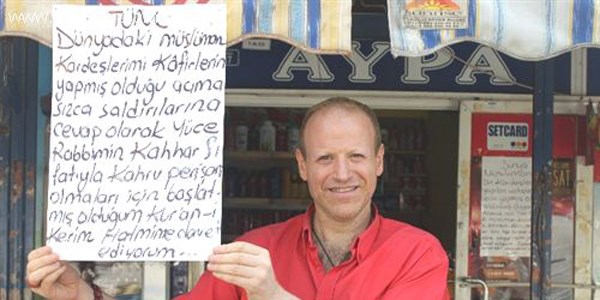 TÜM
Dünyadaki müslüman
Kardeşlerimi Kâfirlerin
yapmış olduğu acıma
sızca saldırılarına
cevap olarak Yüce
Rabbimin Kahhar Sı
fatıyla Kahru perişan
olmaları için başlat
mış olduğum Kur'an-ı
Kerim Hatmime davet
ediyorum...
AYPA
SETCARD